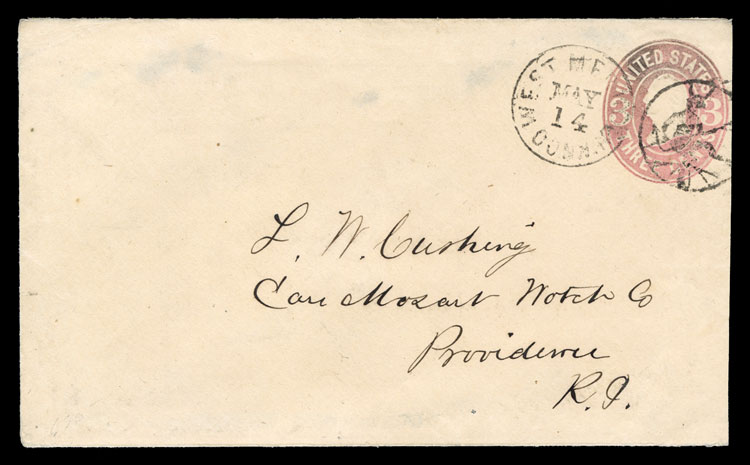 WEST MER CONN
MAY
14
UNITED STATES
3 3
L. W. Cushing
Care Mozart Watch Co
Providence
R.I.